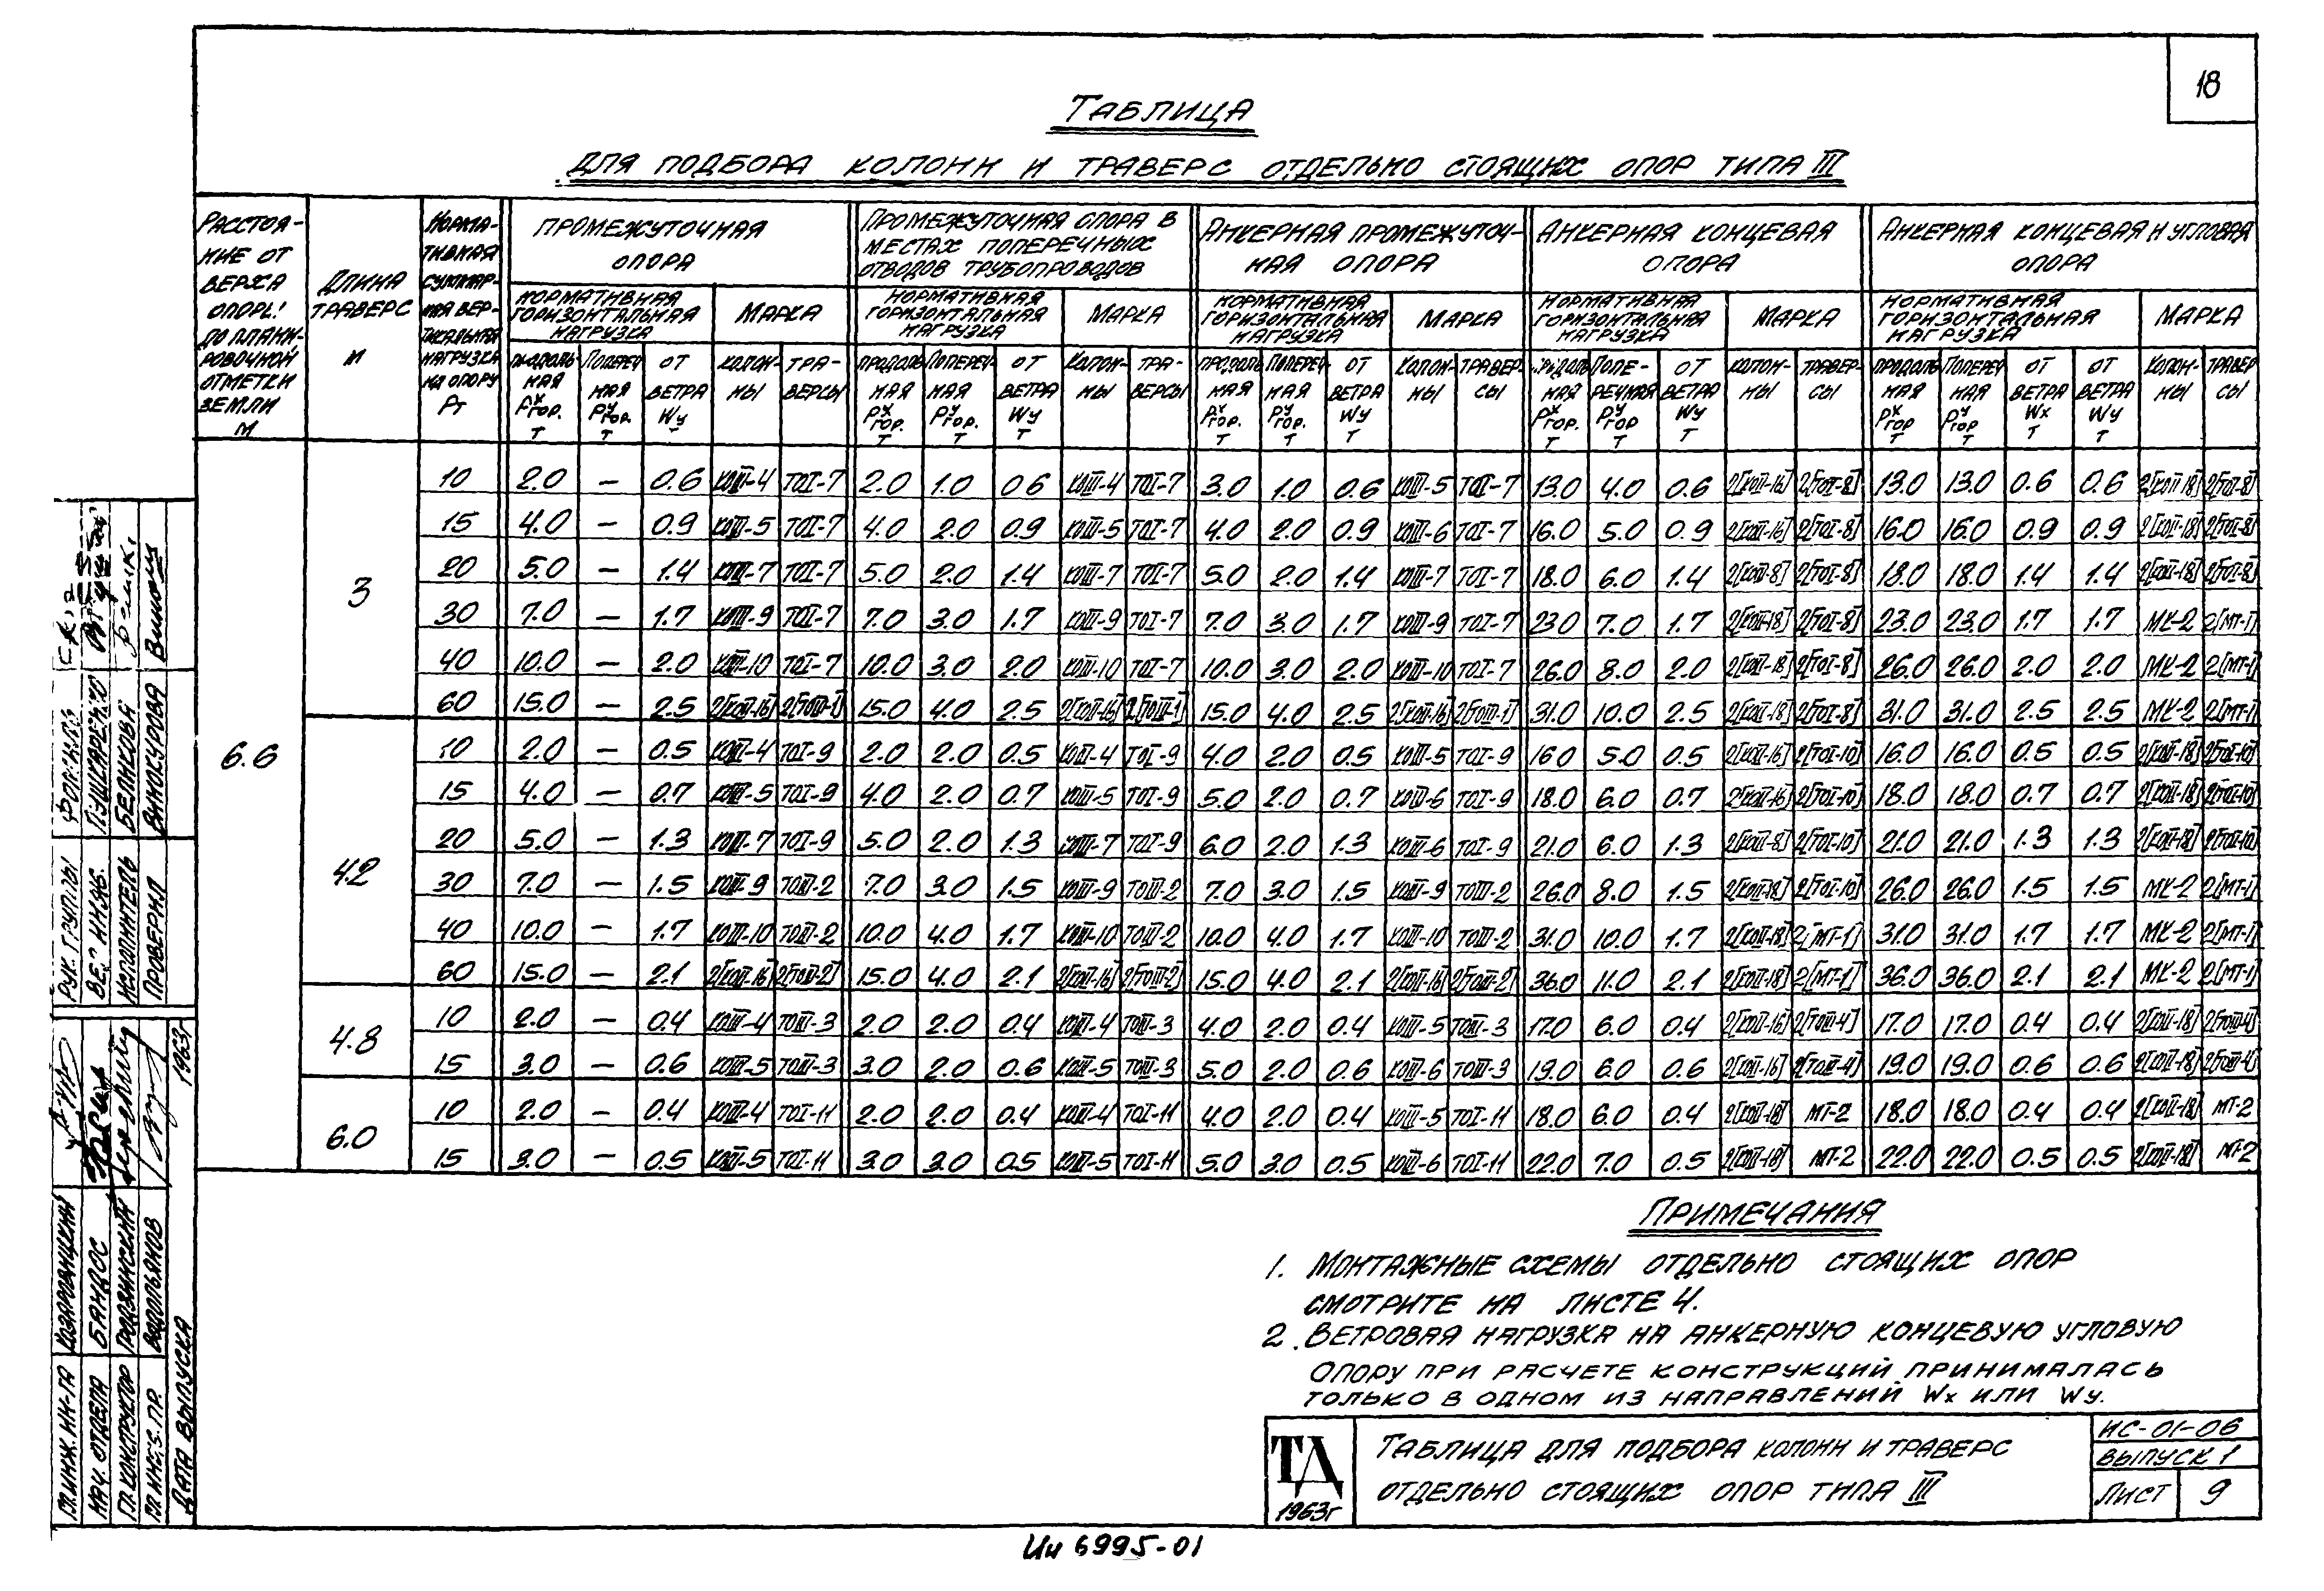 18
Таблица
для подбора колонн и траверс отдельно стоящих опор типа III
Расстояние от верха опоры до планировочной отметки земли м
Длина траверс м
Нормативная суммарная вертикальная нагрузка на опору Рт
Промежуточная опора
Промежуточная опора в местах поперечных отводов трубопроводов
Анкерная промежуточная опора
Анкерная концевая опора
Анкерная концевая и угловая опора
Нормативная горизонтальная нагрузка Марка
Нормативная горизонтальная нагрузка Марка
Нормативная горизонтальная нагрузка Марка
Нормативная горизонтальная нагрузка Марка
Нормативная горизонтальная нагрузка Марка
Продольная Рˣгор. т Поперечная Рʸгор. т от ветра Wу т Колонны Траверсы
Продольная Рˣгор. т Поперечная Рʸгор. т от ветра Wу т Колонны Траверсы
Продольная Рˣгор. т Поперечная Рʸгор. т от ветра Wу т Колонны Траверсы
Продольная Рˣгор. т Поперечная Рʸгор т от ветра Wу т Колонны Траверсы
Продольная Рˣгор т Поперечная Рʸгор т от ветра Wх т от ветра Wу т Колонны Траверсы
6.6
3
10 2.0 — 0.6 КОIII-4 ТОI-7 2.0 1.0 0.6 КОIII-4 ТОI-7 3.0 1.0 0.6 КОIII-5 ТОI-7 13.0 4.0 0.6 2[КОII-16] 2[ТОI-8] 13.0 13.0 0.6 0.6 2[КОII-18] 2[ТОI-8]
15 4.0 — 0.9 КОIII-5 ТОI-7 4.0 2.0 0.9 КОIII-5 ТОI-7 4.0 2.0 0.9 КОIII-6 ТОI-7 16.0 5.0 0.9 2[КОII-16] 2[ТОI-8] 16.0 16.0 0.9 0.9 2[КОII-18] 2[ТОI-8]
20 5.0 — 1.4 КОIII-7 ТОI-7 5.0 2.0 1.4 КОIII-7 ТОI-7 5.0 2.0 1.4 КОIII-7 ТОI-7 18.0 6.0 1.4 2[КОII-8] 2[ТОI-8] 18.0 18.0 1.4 1.4 2[КОII-18] 2[ТОI-8]
30 7.0 — 1.7 КОIII-9 ТОI-7 7.0 3.0 1.7 КОIII-9 ТОI-7 7.0 3.0 1.7 КОIII-9 ТОI-7 23.0 7.0 1.7 2[КОII-18] 2[ТОI-8] 23.0 23.0 1.7 1.7 МК-2 2[МТ-1]
40 10.0 — 2.0 КОIII-10 ТОI-7 10.0 3.0 2.0 КОIII-10 ТОI-7 10.0 3.0 2.0 КОIII-10 ТОI-7 26.0 8.0 2.0 2[КОII-18] 2[ТОI-8] 26.0 26.0 2.0 2.0 МК-2 2[МТ-1]
60 15.0 — 2.5 2[КОII-16] 2[ТОIII-1] 15.0 4.0 2.5 2[КОII-16] 2[ТОIII-1] 15.0 4.0 2.5 2[КОII-16] 2[ТОIII-1] 31.0 10.0 2.5 2[КОII-18] 2[ТОI-8] 31.0 31.0 2.5 2.5 МК-2 2[МТ-1]
4.2
10 2.0 — 0.5 КОIII-4 ТОI-9 2.0 2.0 0.5 КОIII-4 ТОI-9 4.0 2.0 0.5 КОIII-5 ТОI-9 16.0 5.0 0.5 2[КОII-16] 2[ТОI-10] 16.0 16.0 0.5 0.5 2[КОII-18] 2[ТОI-10]
15 4.0 — 0.7 КОIII-5 ТОI-9 4.0 2.0 0.7 КОIII-5 ТОI-9 5.0 2.0 0.7 КОIII-6 ТОI-9 18.0 6.0 0.7 2[КОII-16] 2[ТОI-10] 18.0 18.0 0.7 0.7 2[КОII-18] 2[ТОI-10]
20 5.0 — 1.3 КОIII-7 ТОI-9 5.0 2.0 1.3 КОIII-7 ТОI-9 6.0 2.0 1.3 КОIII-6 ТОI-9 21.0 6.0 1.3 2[КОII-8] 2[ТОI-10] 21.0 21.0 1.3 1.3 2[КОII-18] 2[ТОI-10]
30 7.0 — 1.5 КОIII-9 ТОIII-2 7.0 3.0 1.5 КОIII-9 ТОIII-2 7.0 3.0 1.5 КОIII-9 ТОIII-2 26.0 8.0 1.5 2[КОII-18] 2[ТОI-10] 26.0 26.0 1.5 1.5 МК-2 2[МТ-1]
40 10.0 — 1.7 КОIII-10 ТОIII-2 10.0 4.0 1.7 КОIII-10 ТОIII-2 10.0 4.0 1.7 КОIII-10 ТОIII-2 31.0 10.0 1.7 2[КОII-18] 2[МТ-1] 31.0 31.0 1.7 1.7 МК-2 2[МТ-1]
60 15.0 — 2.1 2[КОII-16] 2[ТОIII-2] 15.0 4.0 2.1 2[КОII-16] 2[ТОIII-2] 15.0 4.0 2.1 2[КОII-16] 2[ТОIII-2] 36.0 11.0 2.1 2[КОII-18] 2[МТ-1] 36.0 36.0 2.1 2.1 МК-2 2[МТ-1]
4.8
10 2.0 — 0.4 КОIII-4 ТОIII-3 2.0 2.0 0.4 КОIII-4 ТОIII-3 4.0 2.0 0.4 КОIII-5 ТОIII-3 17.0 6.0 0.4 2[КОII-16] 2[ТОIII-4] 17.0 17.0 0.4 0.4 2[КОII-18] 2[ТОIII-4]
15 3.0 — 0.6 КОIII-5 ТОIII-3 3.0 2.0 0.6 КОIII-5 ТОIII-3 5.0 2.0 0.6 КОIII-6 ТОIII-3 19.0 6.0 0.6 2[КОII-16] 2[ТОIII-4] 19.0 19.0 0.6 0.6 2[КОII-18] 2[ТОIII-4]
6.0
10 2.0 — 0.4 КОIII-4 ТОI-11 2.0 2.0 0.4 КОIII-4 ТОI-11 4.0 2.0 0.4 КОIII-5 ТОI-11 18.0 6.0 0.4 2[КОII-18] МТ-2 18.0 18.0 0.4 0.4 2[КОII-18] МТ-2
15 3.0 — 0.5 КОIII-5 ТОI-11 3.0 3.0 0.5 КОIII-5 ТОI-11 5.0 3.0 0.5 КОIII-6 ТОI-11 22.0 7.0 0.5 2[КОII-18] МТ-2 22.0 22.0 0.5 0.5 2[КОII-18] МТ-2
Примечания
1. Монтажные схемы отдельно стоящих опор
смотрите на листе 4.
2. Ветровая нагрузка на анкерную концевую угловую
опору при расчете конструкций принималась
только в одном из направлений Wх или Wу.
ТД
1963г
Таблица для подбора колонн и траверс
отдельно стоящих опор типа III
ИС-01-06
Выпуск 1
Лист 9
Ин 6995-01
Рук. группы
Вед. инж. Пушкаренко
Исполнитель Беликова
Проверил Винокурова
Гл. инж. ин-та
Нач. отдела Бандос
Гл. конструктор Гродзинский
Гл. инж. пр. Водольянов
Дата выпуска 1963г